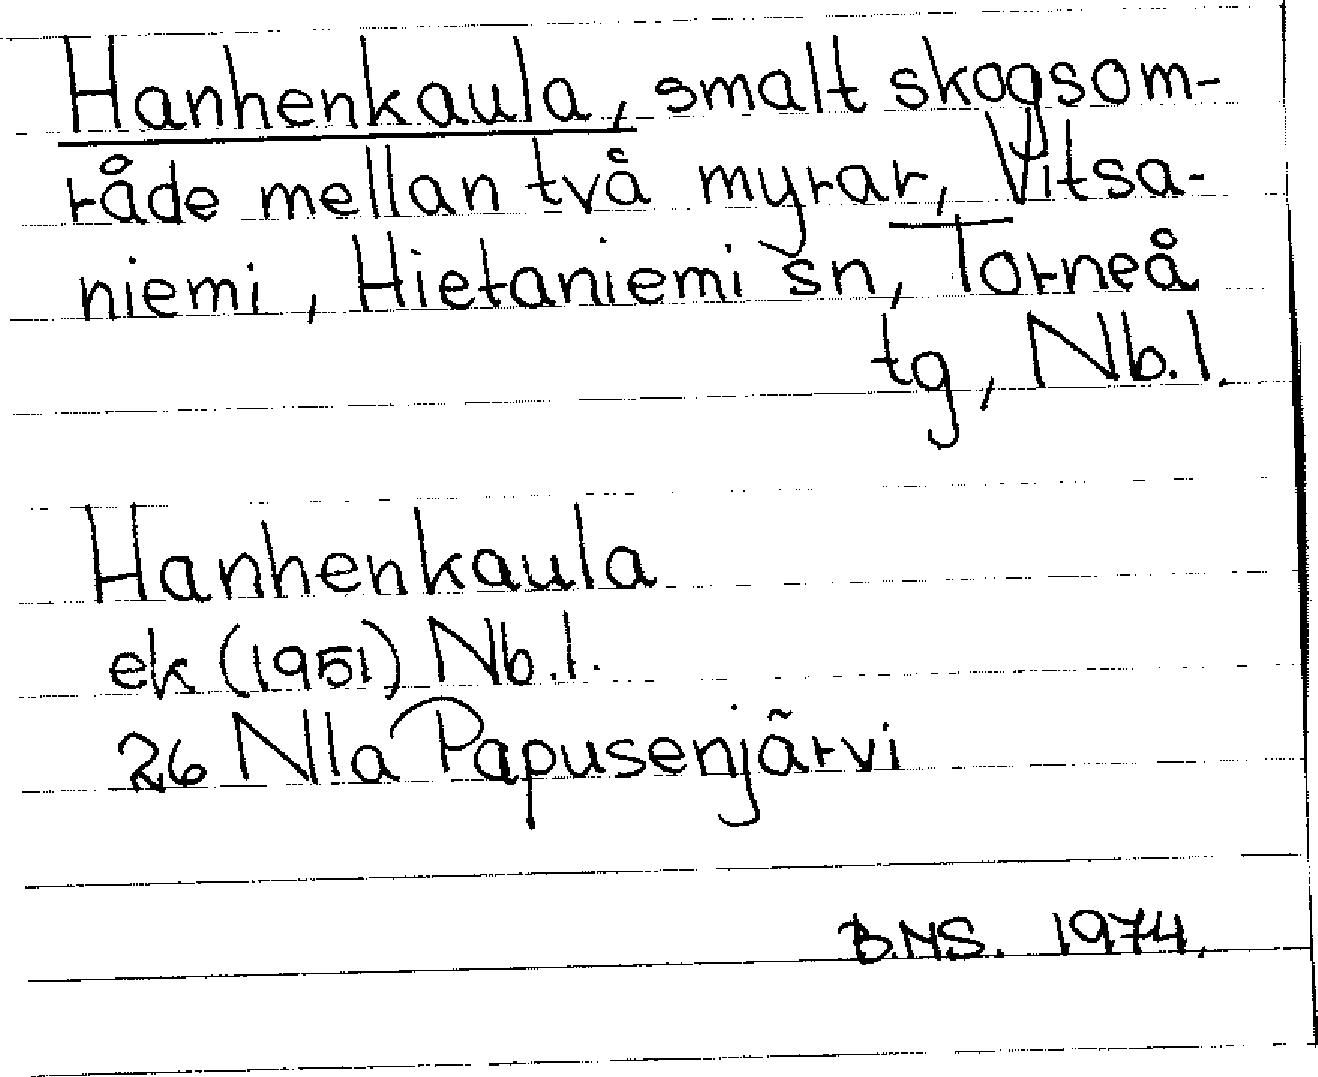 Hanhenkaula, smalt skogsom-
råde mellan två myrar, Vitsa-
niemi, Hietaniemi sn, Torneå
tg, Nb.l.
Hanhenkaula
ek (1951) Nb.l.
26 Nla Papusenjärvi
B.N.S. 1974.